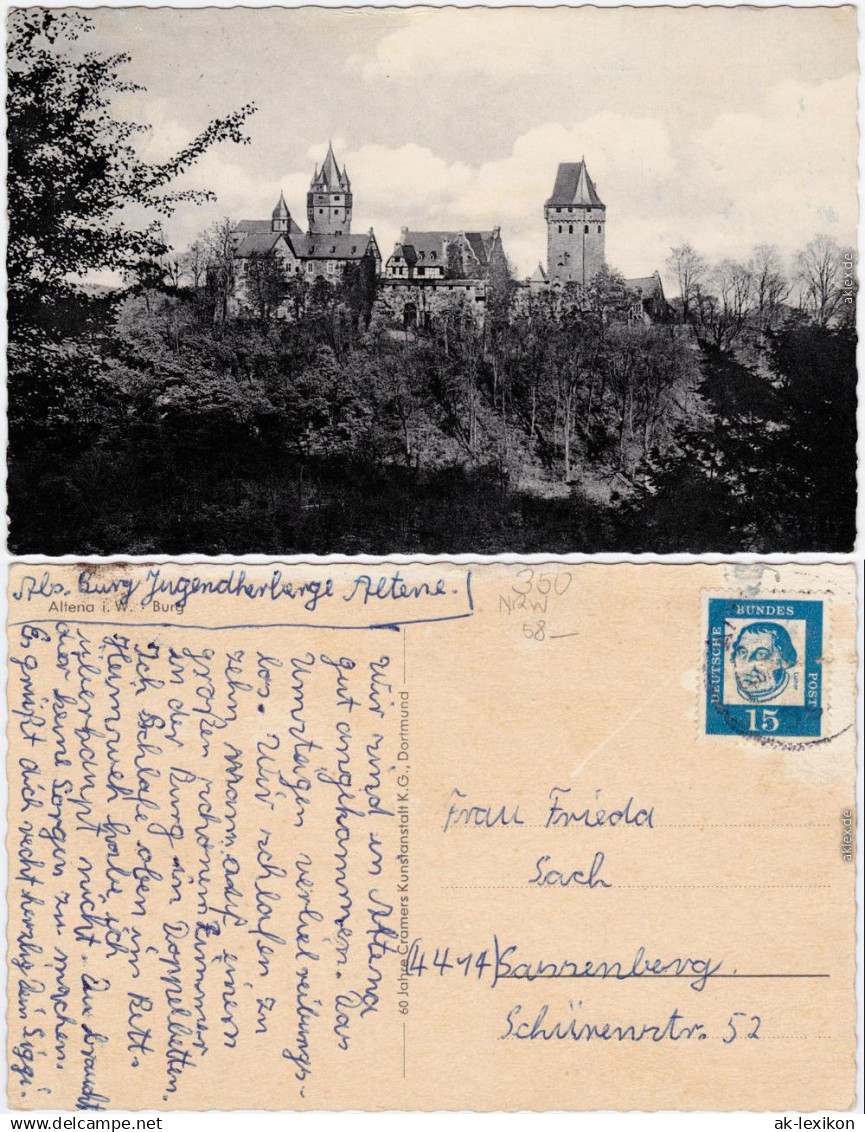 aklex.de
Abs. Burg Jugendherberge Altena.
Altena i. W. : Burg
350
NRW
58—
DEUTSCHE
BUNDES
POST
15
Wir sind in Altena
gut angekommen. Das
Umsteigen verlief reibungs-
los. Wir schlafen zu
zehn Mann auf einem
großen schönen Zimmer
in der Burg in Doppelbetten.
Ich schlafe oben im Bett.
Heimweh habe ich
überhaupt nicht. Du brauchst
dir keine Sorgen zu machen.
Es grüßt dich recht herzlig Dein Siggi.
60 Jahre Cramers Kunstanstalt K.G., Dortmund
Frau Frieda
Sach
(4414) Sassenberg.
Schürenstr. 52
aklex.de
ak-lexikon